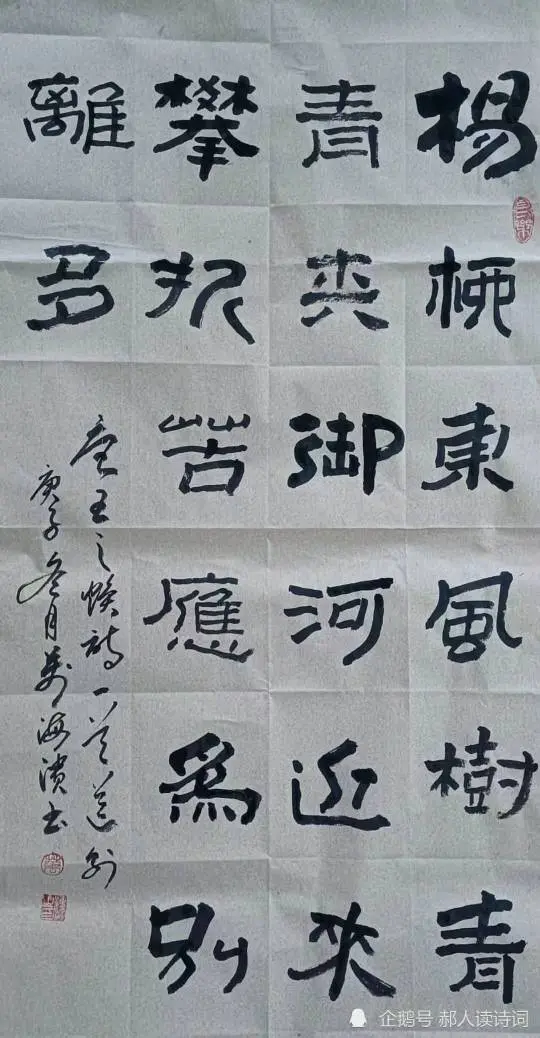 楊桺東風樹青
青夾御河近來
攀折苦應爲別
離多
唐王之煥詩一首送別
庚子冬月萬海濱書
企鹅号 郝人读诗词